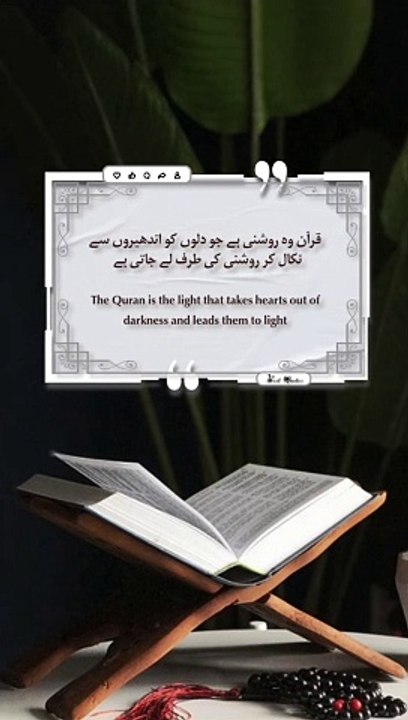 قرآن وہ روشنی ہے جو دلوں کو اندھیروں سے
نکال کر روشنی کی طرف لے جاتی ہے
The Quran is the light that takes hearts out of
darkness and leads them to light